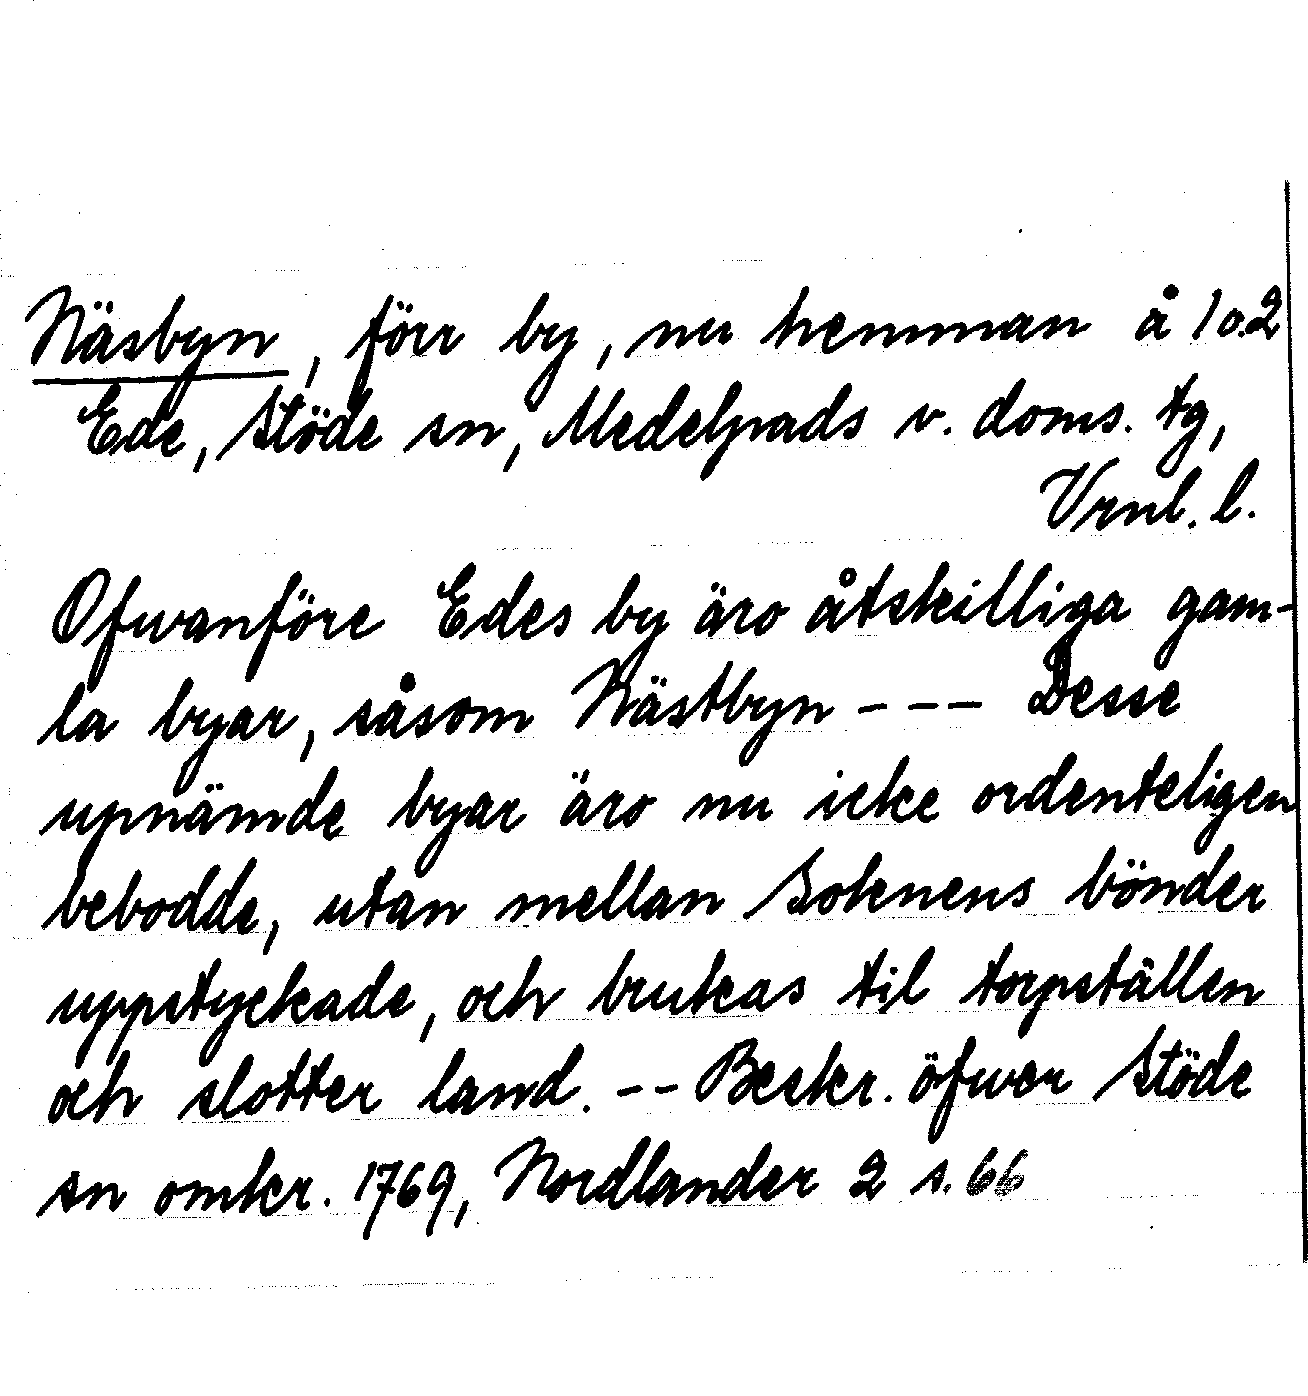 Näsbyn, förr by, nu hemman å 1 o. 2
Ede, Stöde sn, Medelpads v. doms. tg,
Vrnl. l.
Ofwanföre Edes by äro åtskilliga gam-
la byar, såsom Nästbyn - - - Desse
upnämde byar äro nu icke ordenteligen
bebodde, utan mellan Soknens bönder
uppstyckade, och brukas til torpställen
och slotter land. - - Beskr. öfwer Stöde
sn omkr. 1769, Nordlander 2 s. 66